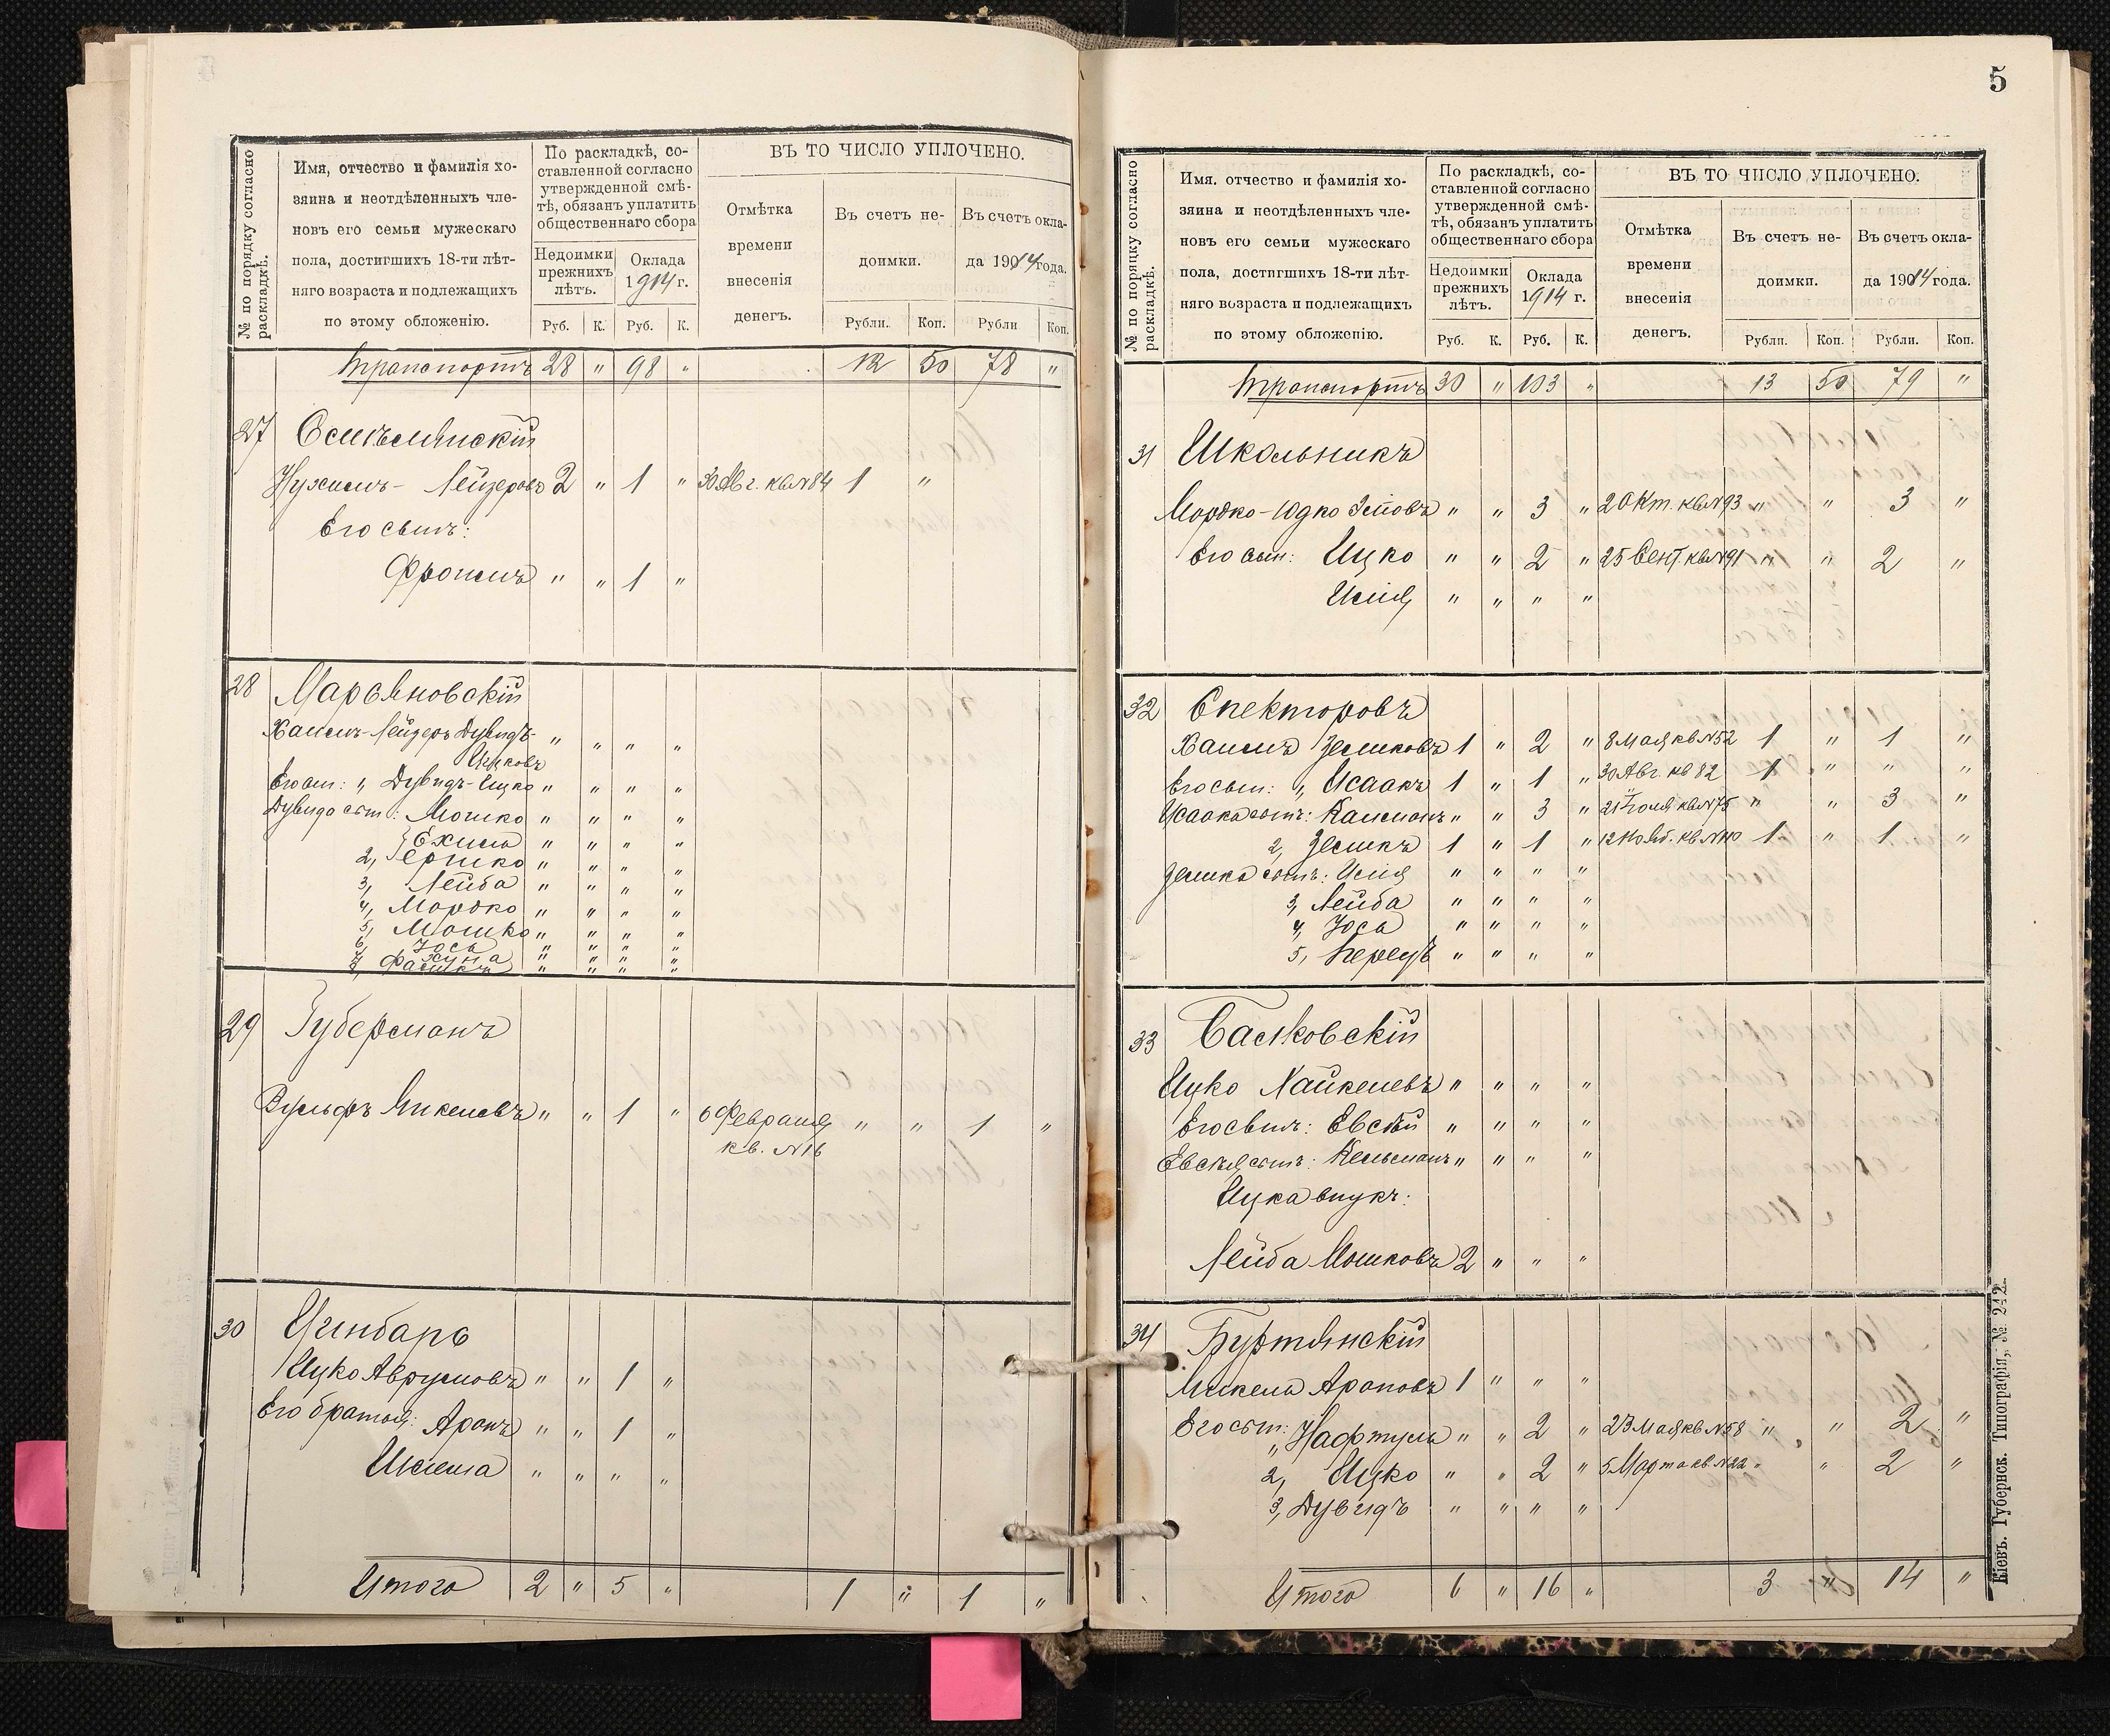 № по порядку согласно раскладкѣ.
Имя, отчество и фамилія хо-
зяина и неотдѣленныхъ чле-
новъ его семьи мужескаго
пола, достигшихъ 18-ти лѣт-
няго возраста и подлежащихъ
по этому обложенію.
По раскладкѣ, со-
ставленной согласно
утвержденной смѣ-
тѣ, обязанъ уплатить
общественнаго сбора
Недоимки
прежнихъ
лѣтъ.
Оклада
1914 г.
Руб. К. Руб. К.
ВЪ ТО ЧИСЛО УПЛОЧЕНО.
Отмѣтка
времени
внесенія
денегъ.
Въ счетъ не-
доимки.
Въ счетъ окла-
да 1914 года.
Рубли. Коп. Рубли Коп.
Транспортъ 28 " 98 " 12 50 78 "
27 Смѣлянскій
Нухимъ - Лейзеровъ 2 " 1 " 30 Авг. кв. №84 1 "
Его сынъ:
Фроимъ " " 1 "
28 Марьяновскій
Хаимъ-Лейзеръ Дувидъ- " " " "
Ицковъ
Его сын: " Дувидъ-Ицко " " " "
Дувида сын: Мошко " " " "
Ехиль " " " "
2, Гершко " " " "
3, Лейба " " " "
4, Мордко " " " "
5, Мошко " " " "
6, Іось " " " "
29 Губерманъ
Вульфъ Янкелевъ " " 1 " 6 Февраля " " 1 "
кв. №16
30 Цимбаръ
Ицко Аврумовъ " " 1 "
Его братья: Аронъ " " 1 "
Шлема " " " "
Итого 2 " 5 " 1 " 1 "
5
№ по поряцку согласно раскладкѣ.
Имя. отчество и фамилія хо-
зяина и неотдѣленныхъ чле-
новъ его семьи мужескаго
пола, достигшихъ 18-ти лѣт-
няго возраста и подлежащихъ
по этому обложенію.
По раскладкѣ, со-
ставленной согласно
утвержденной смѣ-
тѣ, обязанъ уплатить
общественнаго сбора
Недоимки
прежнихъ
лѣтъ.
Оклада
1914 г.
Руб. К. Руб. К.
ВЪ ТО ЧИСЛО УПЛОЧЕНО.
Отмѣтка
времени
внесенія
денегъ.
Въ счетъ не-
доимки.
Въ счетъ окла-
да 1914 года.
Рубли. Коп. Рубли. Коп.
Транспортъ 30 " 103 " 13 50 79 "
31 Школьникъ
Мордко-Юдко " " 3 " 2 Окт. кв. №93 " " 3 "
Его сын: Ицко " " 2 " 25 Сент. кв. №91 " " 2 "
" " " "
32 Спекторовъ
Хаимъ Зеликовъ 1 " 2 " 8 Мая кв. №52 1 " 1 "
Его сын: " Исаакъ 1 " 1 " 30 Авг. кв 82 1 " " "
Исаака сынъ: Калманъ " " 3 " 21 Іюля кв. №75 " " 3 "
2, Зеликъ 1 " 1 " 12 Нояб. кв. №110 1 " 1 "
Зелика сынъ: " " " "
3, Лейба " " " "
4, Іось " " " "
5, Перецъ " " " "
33 Балковскій
Ицко Хайкелевъ " " " "
Его сынъ: Евсѣй " " " "
Евсѣя сынъ: Кельманъ " " " "
Ицка внукъ:
Лейба Мошковъ 2 " " "
34 Буртянскій
Микель Ароновъ 1 " " "
Его сын: " Нафтуль " " 2 " 23 Мая кв. №58 " " 2 "
2, Ицко " " 2 " 5 Марта кв. №22 " " 2 "
3, Дувидъ " " " "
Итого 6 " 16 " 3 " 14 "
Кіевъ. Губернск. Типографія, №. 242.